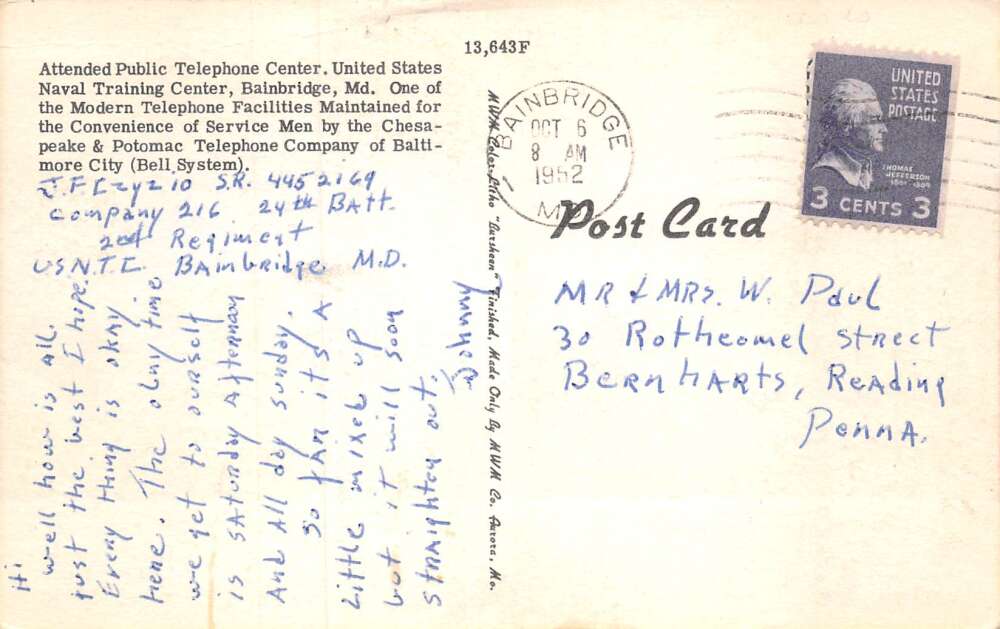 13,643F
Attended Public Telephone Center. United States
Naval Training Center, Bainbridge, Md. One of
the Modern Telephone Facilities Maintained for
the Convenience of Service Men by the Chesa-
peake & Potomac Telephone Company of Balti-
more City (Bell System).
J. F. Czyzio S.R. 4452169
Company 216 24th Batt.
2nd Regiment
U.S.N.T.C. Bainbridge M.D.
Hi
well how is all.
just the best I hope.
Every thing is okay
here. The olny time
we get to ourself
is saturday afternoon
And all day sunday.
So far it's A
Little mixed up
but it will soon
straighten out.
Johnny
MWM Color-Litho "Larsheen" Finished, Made Only By MWM Co. Aurora, Mo.
BAINBRIDGE
OCT 6
8 AM
1952
MD.
UNITED
STATES
POSTAGE
THOMAS
JEFFERSON
1801-1809
3 CENTS 3
Post Card
MR & MRS. W. Paul
30 Rothermel street
BERNHARTS, Reading
Penna.